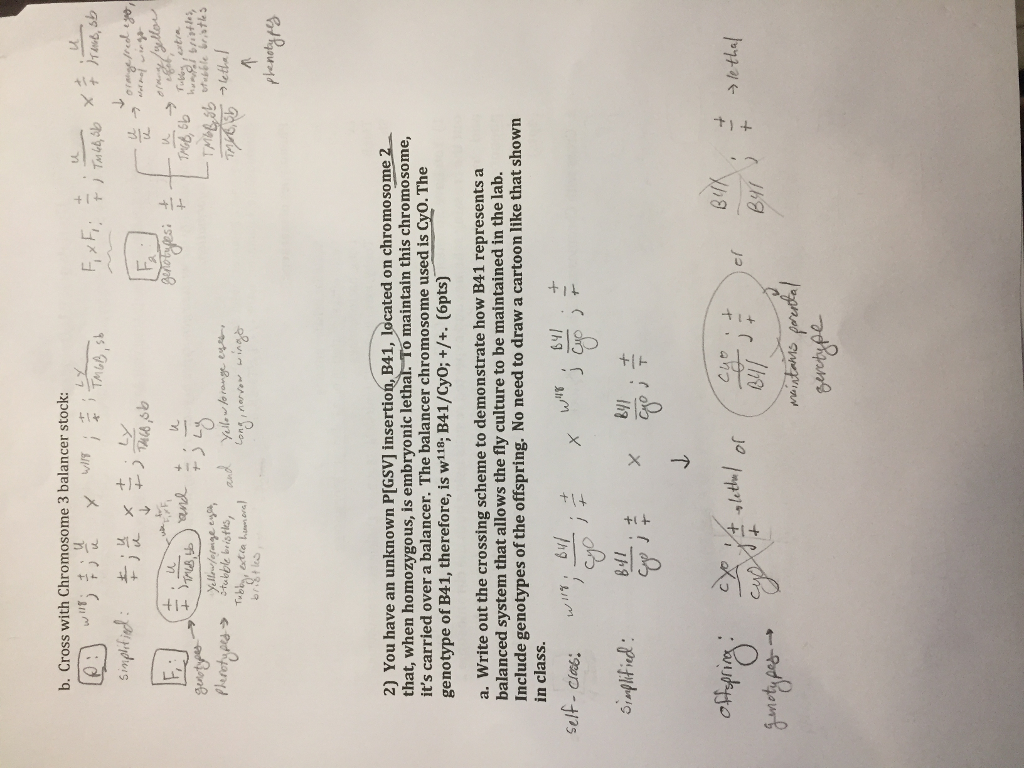 b. Cross with Chromosome 3 balancer stock:
P: w118; +/+; u/u x w118; +/+; Ly/TM6B,sb
simplified: +/+; u/u x +/+; Ly/TM6B,sb
↓
F1: genotypes → +/+; u/TM6B,sb and +/+; u/Ly
phenotypes → Yellow/orange eyes, stubble bristles, Tubby, extra humeral bristles and Yellow/orange eyes, Long, narrow wings
F1 x F1: +/+; u/TM6B,sb x +/+; u/TM6B,sb
↓
F2:
genotypes: +/+
u/u → orange/red eyes, normal wings
u/TM6B,sb → orange/yellow eyes, Tubby, extra humeral bristles, stubble bristles
TM6B,sb/TM6B,sb → lethal
↑
phenotypes
2) You have an unknown P[GSV] insertion, B41, located on chromosome 2
that, when homozygous, is embryonic lethal. To maintain this chromosome,
it's carried over a balancer. The balancer chromosome used is CyO. The
genotype of B41, therefore, is w118; B41/CyO; +/+. (6pts)
a. Write out the crossing scheme to demonstrate how B41 represents a
balanced system that allows the fly culture to be maintained in the lab.
Include genotypes of the offspring. No need to draw a cartoon like that shown
in class.
self-cross: w118; B41/Cyo; +/+ x w118; B41/Cyo; +/+
simplified: B41/Cyo; +/+ x B41/Cyo; +/+
↓
offspring:
genotypes → Cyo/Cyo; +/+ → lethal or Cyo/B41; +/+ or B41/B41; +/+ → lethal
maintains parental
genotype